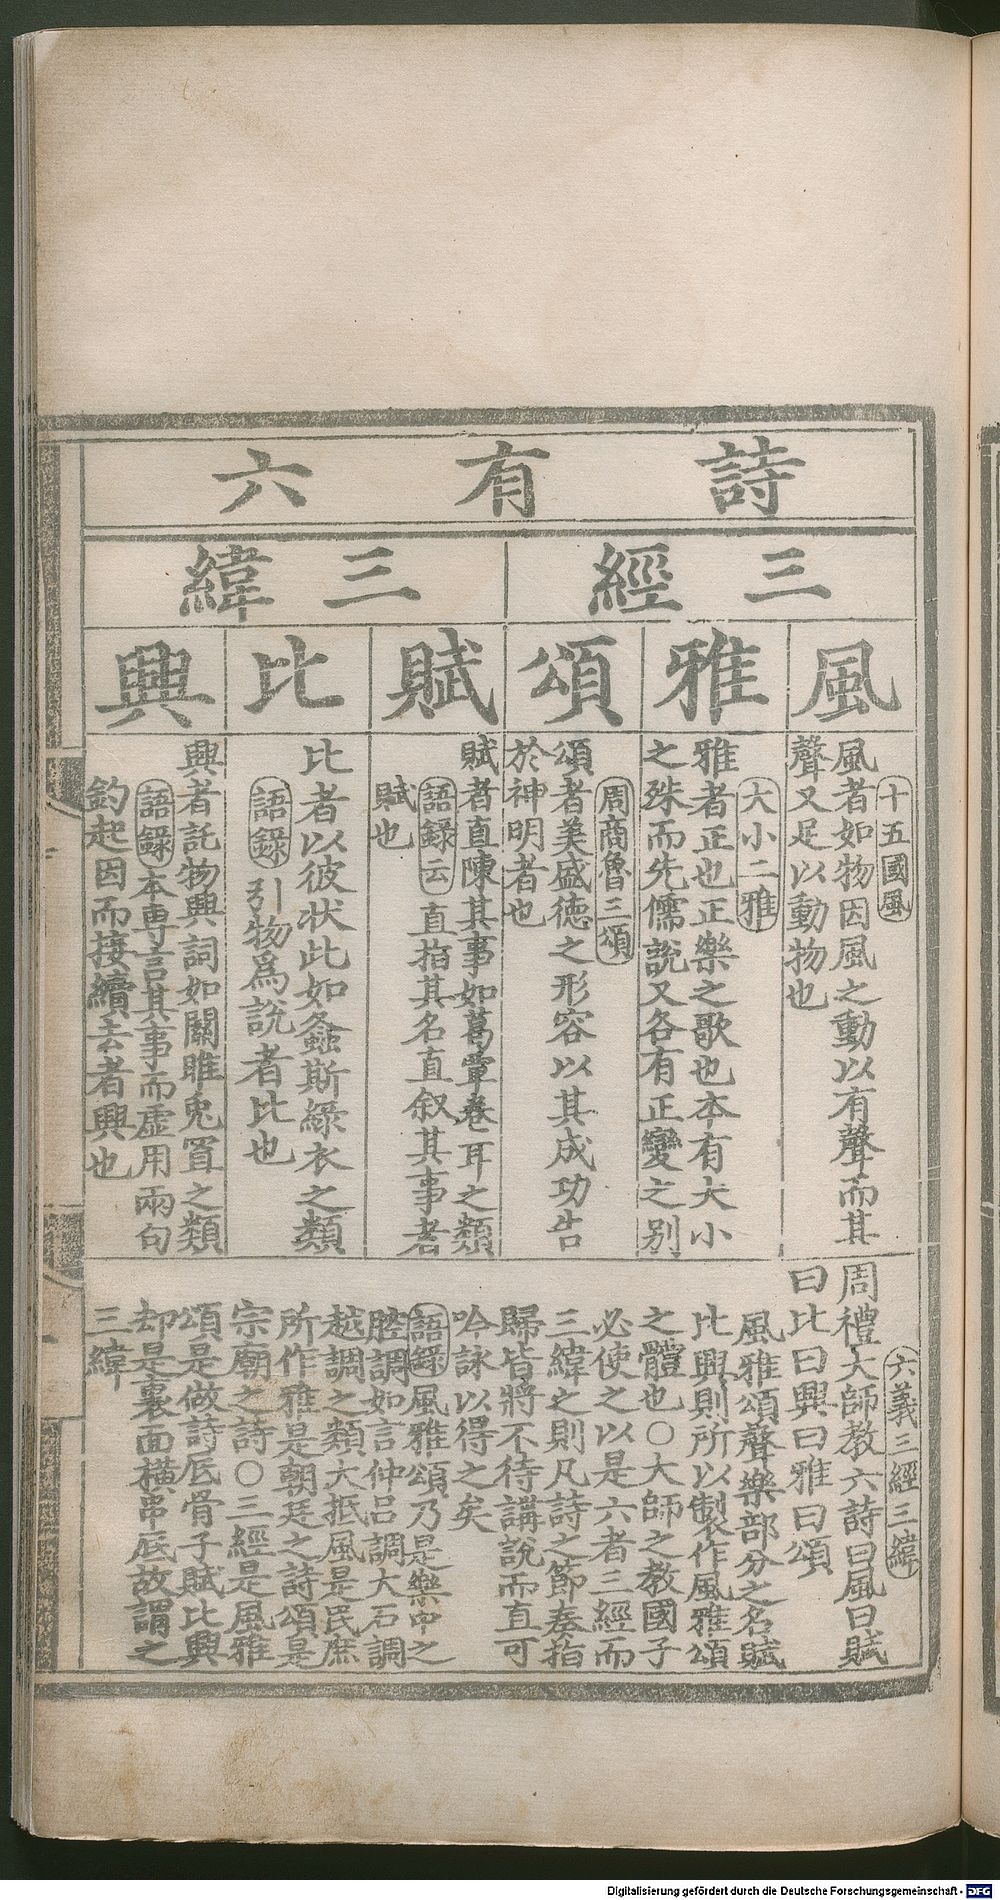 詩有六
三經
三緯
風
雅
頌
賦
比
興
十五國風
風者如物因風之動以有聲而其
聲又足以動物也
大小二雅
雅者正也正樂之歌也本有大小
之殊而先儒說又各有正變之別
周商魯三頌
頌者美盛德之形容以其成功告
於神明者也
賦者直陳其事如葛覃卷耳之類
語錄云直指其名直叙其事者
賦也
比者以彼狀此如螽斯綠衣之類
語錄引物爲說者比也
興者託物興詞如關雎兔罝之類
語錄本專言其事而虛用兩句
釣起因而接續去者興也
六義三經三緯
周禮大師教六詩曰風曰賦
曰比曰興曰雅曰頌
風雅頌聲樂部分之名賦
比興則所以製作風雅頌
之體也○大師之教國子
必使之以是六者三經而
三緯之則凡詩之節奏指
歸皆將不待講說而直可
吟詠以得之矣
語錄風雅頌乃是樂中之
腔調如言仲呂調大石調
越調之類大抵風是民庶
所作雅是朝廷之詩頌是
宗廟之詩○三經是風雅
頌是做詩底骨子賦比興
却是裏面橫串底故謂之
三緯
Digitalisierung gefördert durch die Deutsche Forschungsgemeinschaft - DFG